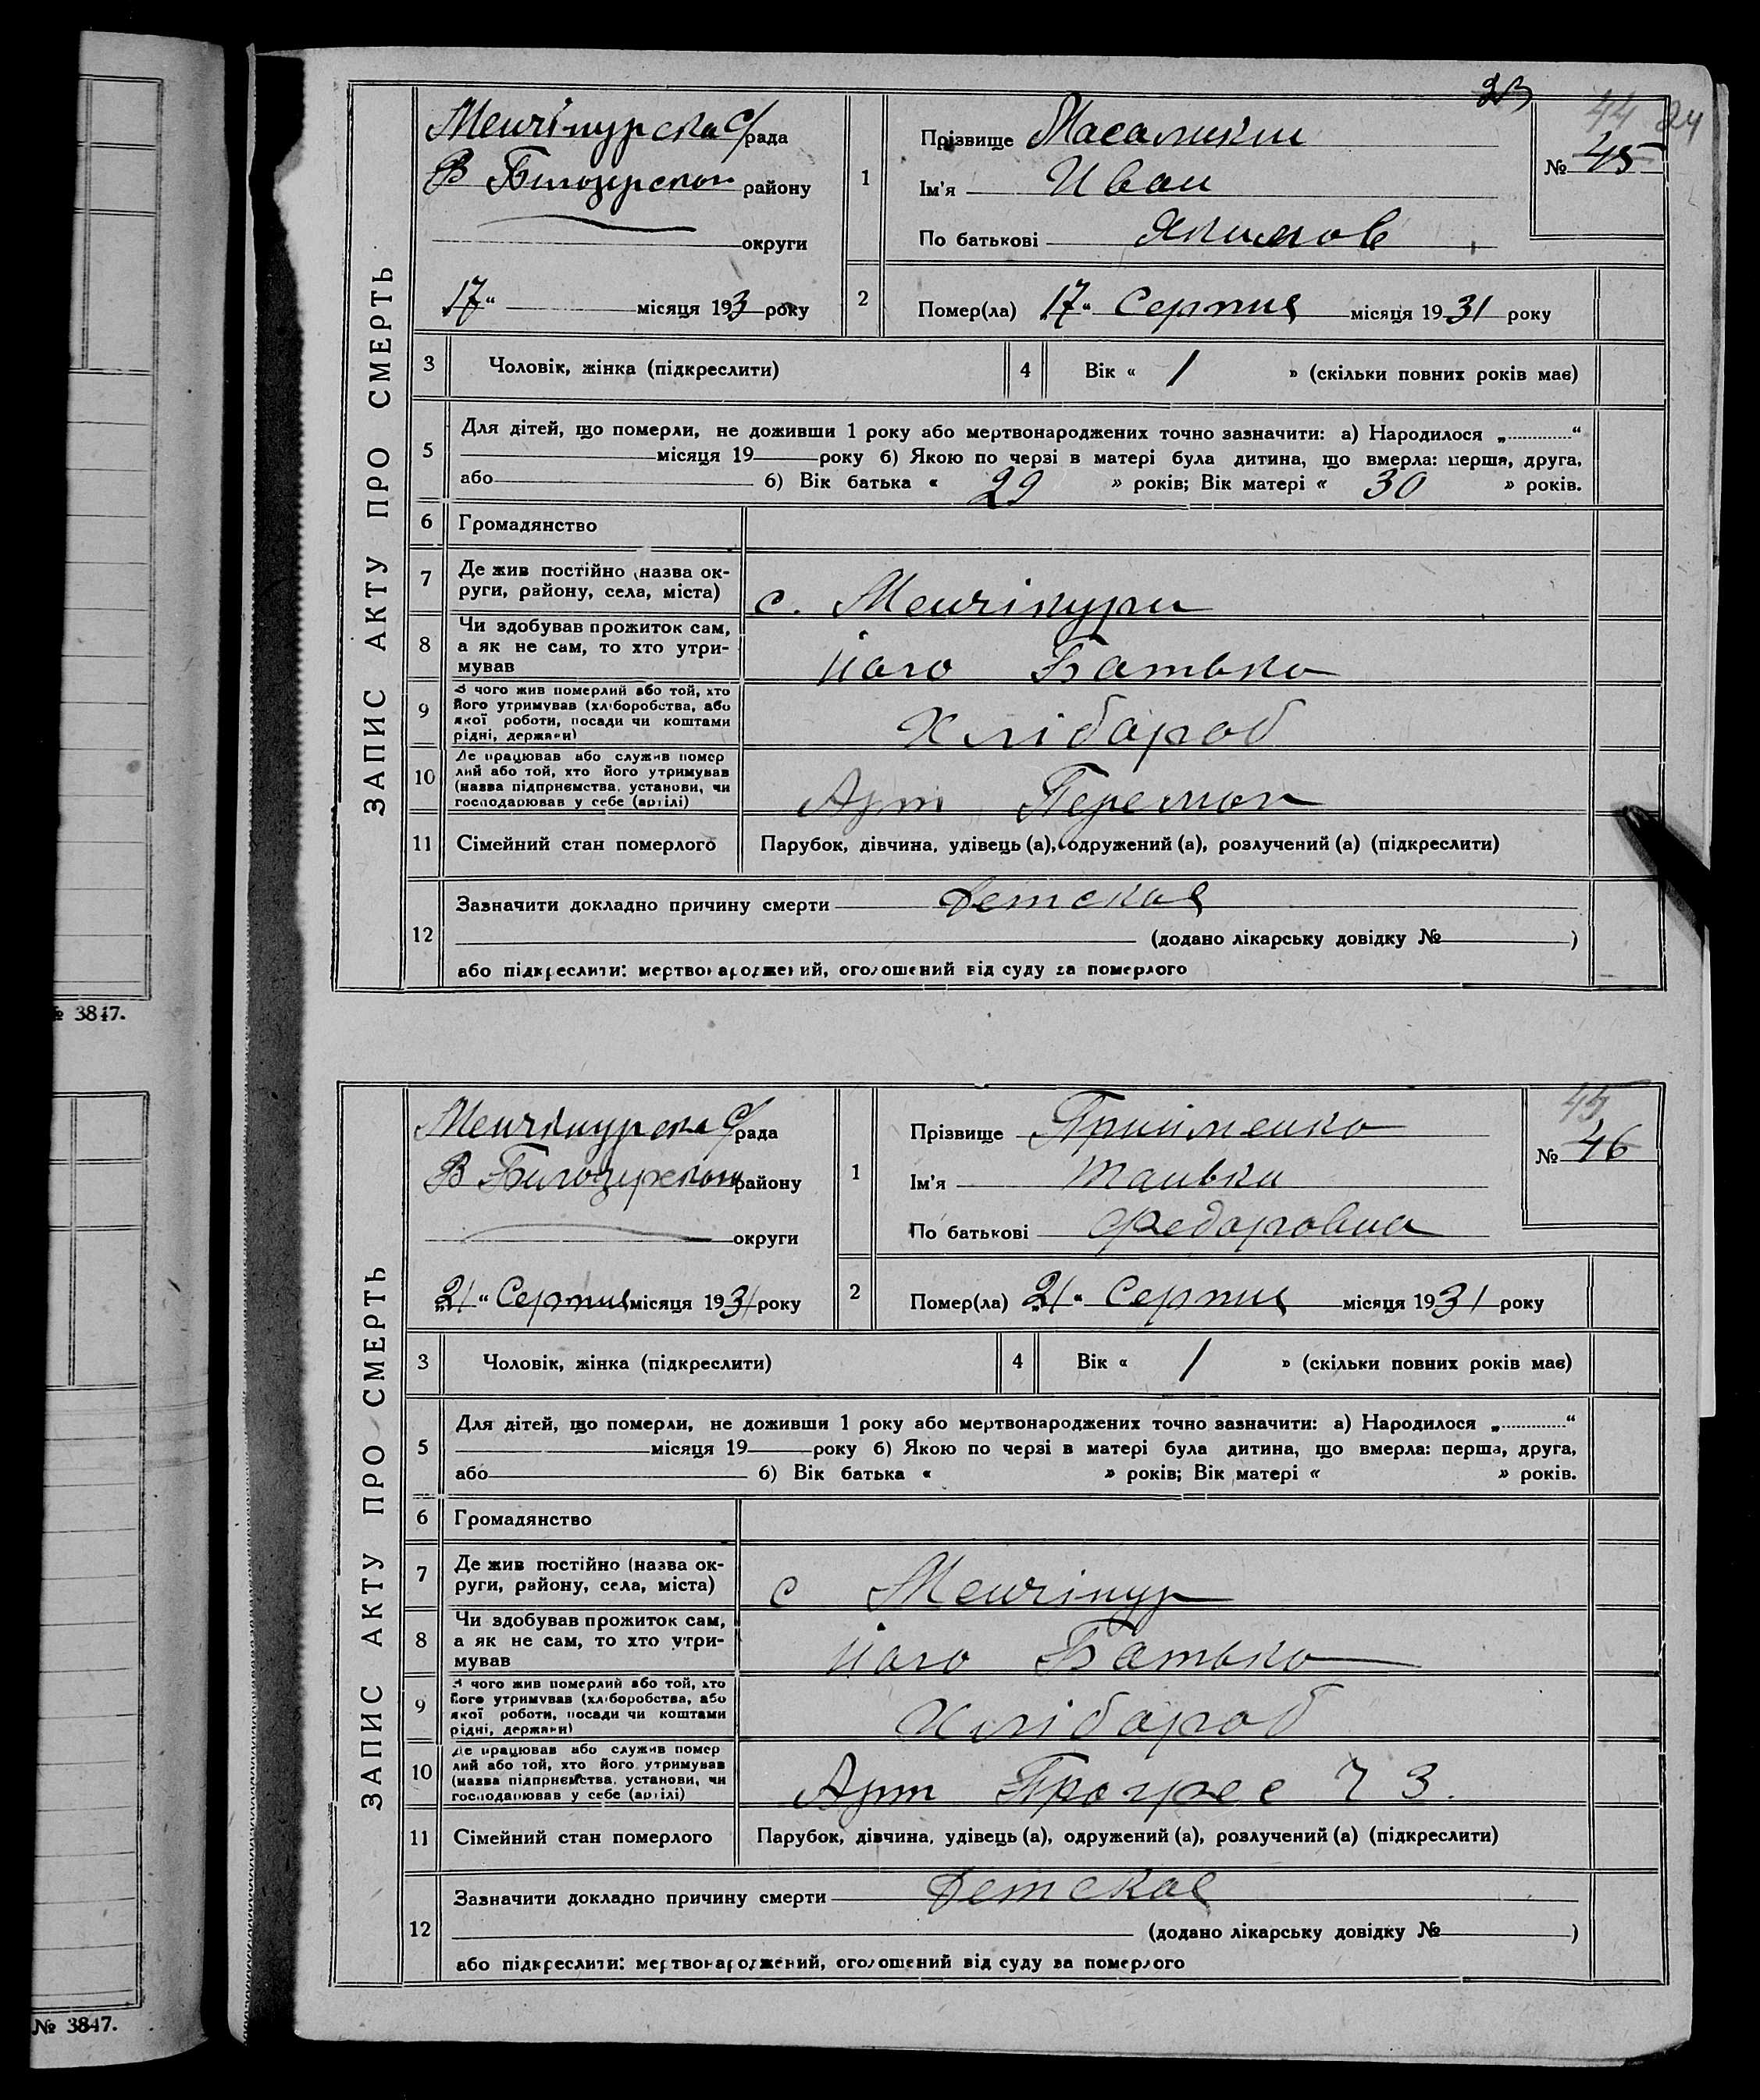 23
44 24
ЗАПИС АКТУ ПРО СМЕРТЬ
Менчікурска С/рада
В Білозирском району
округи
17 “ місяця 193 року
1
Прізвище Масаликин
Ім'я Иван
По батькові Якимов
№ 45
2
Помер(ла) 17 “ Серпня місяця 1931 року
3 Чоловік, жінка (підкреслити)
4 Вік « 1 » (скільки повних років має)
5 Для дітей, що померли, не доживши 1 року або мертвонароджених точно зазначити: а) Народилося „ “
місяця 19 року б) Якою по черзі в матері була дитина, що вмерла: перша, друга,
або б) Вік батька « 29 » років; Вік матері « 30 » років.
6 Громадянство
7 Де жив постійно (назва ок-
руги, району, села, міста) с. Менчікури
8 Чи здобував прожиток сам,
а як не сам, то хто утри-
мував його Батько
9 З чого жив померлий або той, хто
його утримував (хліборобства, або
якої роботи, посади чи коштами
рідні, держави) Хлібороб
10 Де працював або служив помер
лий або той, хто його утримував
(назва підприємства, установи, чи
господарював у себе (артілі) Арт Перемог
11 Сімейний стан померлого Парубок, дівчина, удівець (а), одружений (а), розлучений (а) (підкреслити)
12 Зазначити докладно причину смерти Детская
(додано лікарську довідку № )
або підкреслити: мертвонароджений, оголошений від суду за померлого
№ 3847.
45
ЗАПИС АКТУ ПРО СМЕРТЬ
Менчікурска С/рада
В Білозирском району
округи
21 “ Серпня місяця 1931 року
1
Прізвище Прийменко
Ім'я
По батькові Федоровна
№ 46
2
Помер(ла) 21 “ Серпня місяця 1931 року
3 Чоловік, жінка (підкреслити)
4 Вік « 1 » (скільки повних років має)
5 Для дітей, що померли, не доживши 1 року або мертвонароджених точно зазначити: а) Народилося „ “
місяця 19 року б) Якою по черзі в матері була дитина, що вмерла: перша, друга,
або б) Вік батька « » років; Вік матері « » років.
6 Громадянство
7 Де жив постійно (назва ок-
руги, району, села, міста) с Менчікур
8 Чи здобував прожиток сам,
а як не сам, то хто утри-
мував його Батько
9 З чого жив померлий або той, хто
його утримував (хліборобства, або
якої роботи, посади чи коштами
рідні, держави) Хлібороб
10 Де працював або служив помер
лий або той, хто його утримував
(назва підприємства, установи, чи
господарював у себе (артілі) Арт Прогрес 73.
11 Сімейний стан померлого Парубок, дівчина, удівець (а), одружений (а), розлучений (а) (підкреслити)
12 Зазначити докладно причину смерти Детская
(додано лікарську довідку № )
або підкреслити: мертвонароджений, оголошений від суду за померлого
№ 3847.